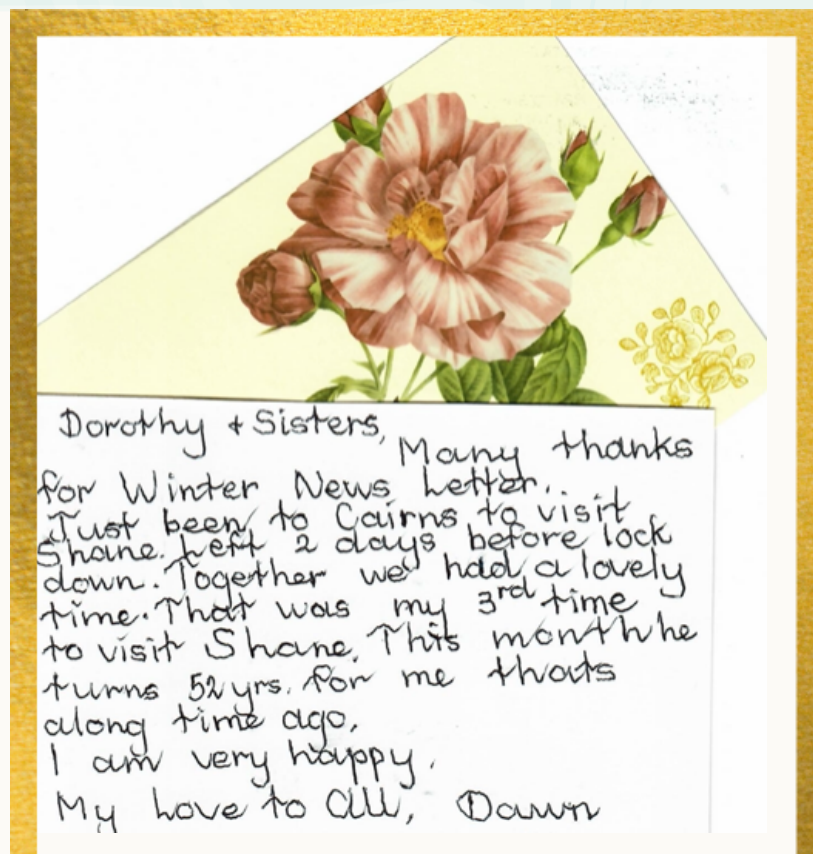 Dorothy + Sisters,
Many thanks
for Winter News Letter..
Just been to Cairns to visit
Shane. Left 2 days before lock
down. Together we had a lovely
time. That was my 3rd time
to visit Shane. This month he
turns 52 yrs. for me thats
along time ago.
I am very happy.
My Love to All, Dawn